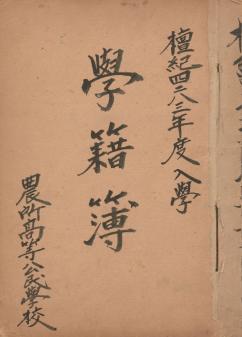 檀紀四二八三年度入學
學籍簿
農所高等公民學校